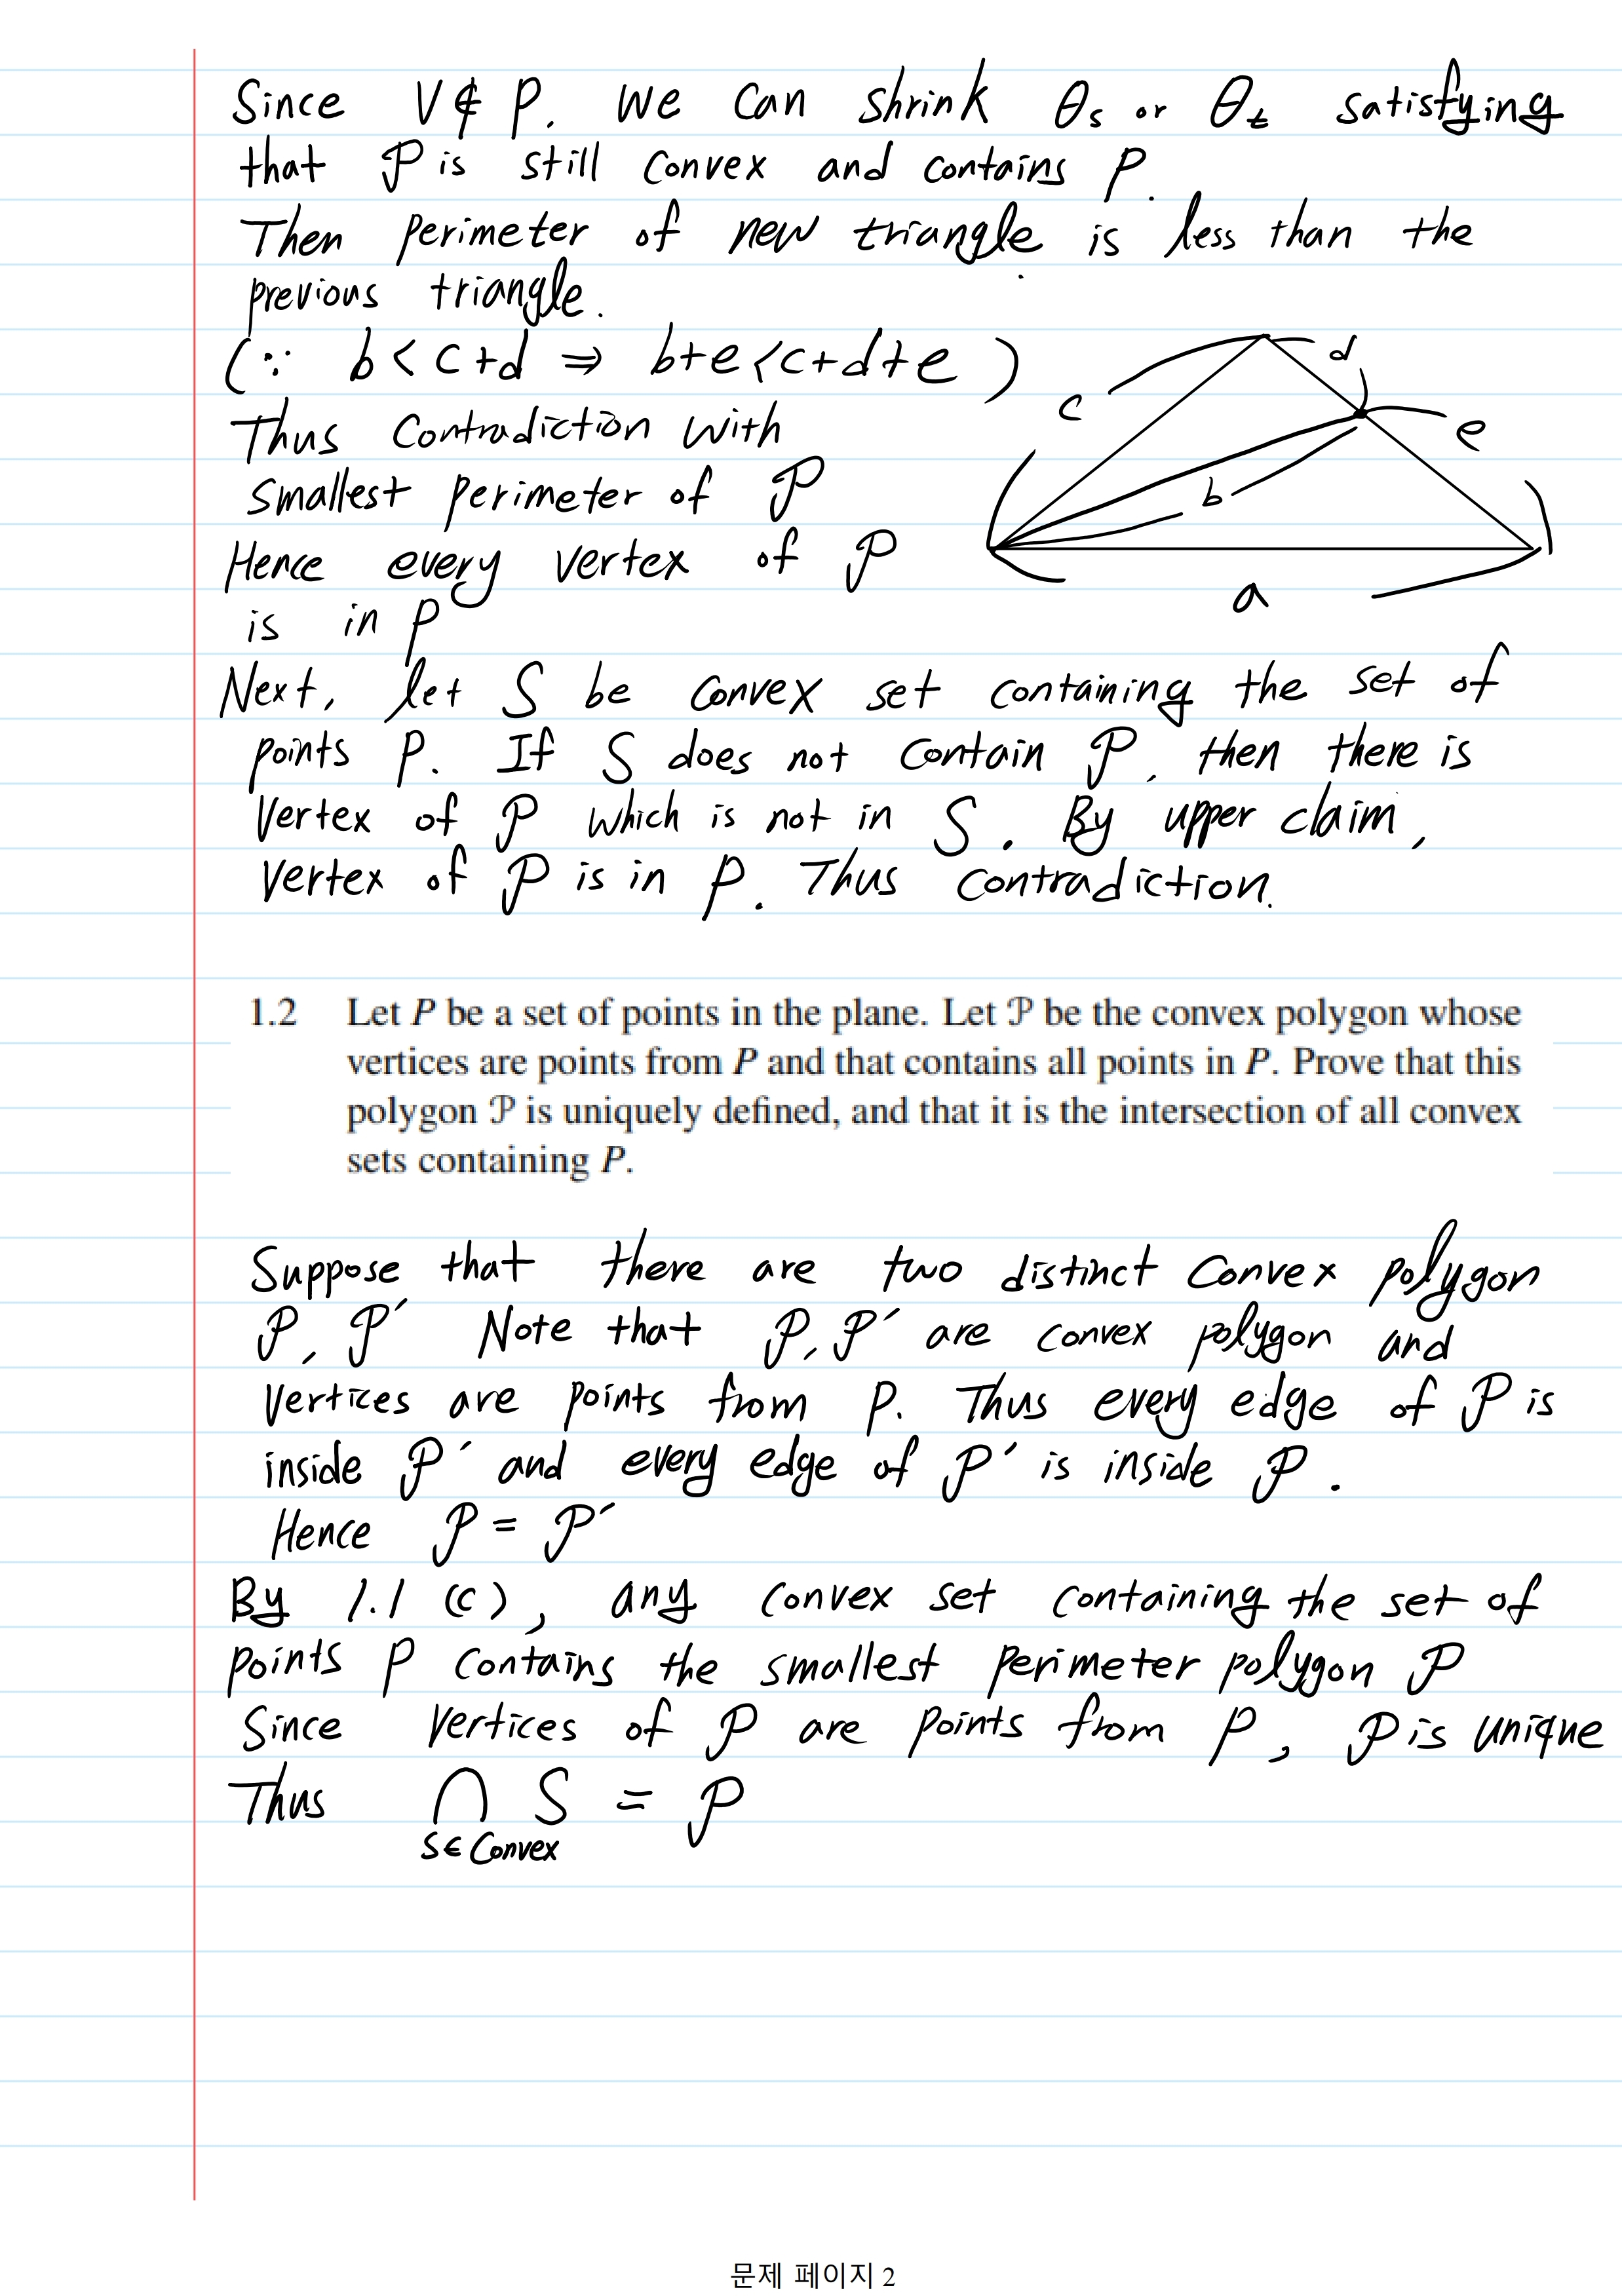 Since V ∉ P. We can shrink θs or θt satisfying
that 𝒫 is still convex and contains P.
Then perimeter of new triangle is less than the
previous triangle.
(∵ b < c+d ⇒ b+e < c+d+e )
d
c
e
Thus Contradiction with
b
smallest perimeter of 𝒫
Hence every vertex of 𝒫
a
is in P
Next, let S be convex set containing the set of
points P. If S does not contain 𝒫, then there is
Vertex of 𝒫 which is not in S. By upper claim,
Vertex of 𝒫 is in P. Thus contradiction.
1.2 Let P be a set of points in the plane. Let 𝒫 be the convex polygon whose
vertices are points from P and that contains all points in P. Prove that this
polygon 𝒫 is uniquely defined, and that it is the intersection of all convex
sets containing P.
Suppose that there are two distinct Convex polygon
𝒫, 𝒫′ Note that 𝒫, 𝒫′ are convex polygon and
Vertices are points from P. Thus every edge of 𝒫 is
inside 𝒫′ and every edge of 𝒫′ is inside 𝒫.
Hence 𝒫 = 𝒫′
By 1.1 (c), any convex set containing the set of
points P contains the smallest perimeter polygon 𝒫
Since Vertices of 𝒫 are points from P, 𝒫 is unique
Thus ⋂ S = 𝒫
S∈Convex
문제 페이지 2